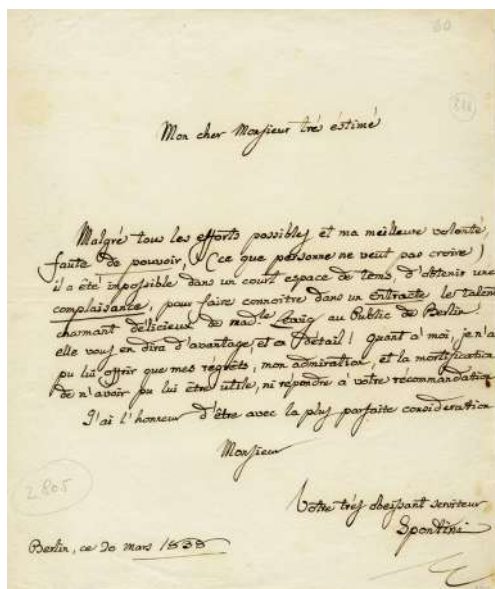 60
Mon cher Monsieur trés éstimé
Malgré tous les efforts possibles et ma meilleure volonté,
faute de pouvoir, (ce que personne ne veut pas croire)
il a été impossible dans un court espace de tems, d'obtenir une
complaisance, pour faire connoître dans un Entracte le talent
charmant délicieux de mad.le au Public de Berlin!
elle vous en dira d'avantage, et en détail! quant à moi, je n'ai
pu lui offrir que mes régréts, mon admiration, et la mortification
de n'avoir pu lui être utile, ni repondre à votre récommandation
J'ai l'honneur d'être avec la plus parfaite consideration
Monsieur
2805
Votre trés obeissant serviteur
Spontini
Berlin, ce 20 mars